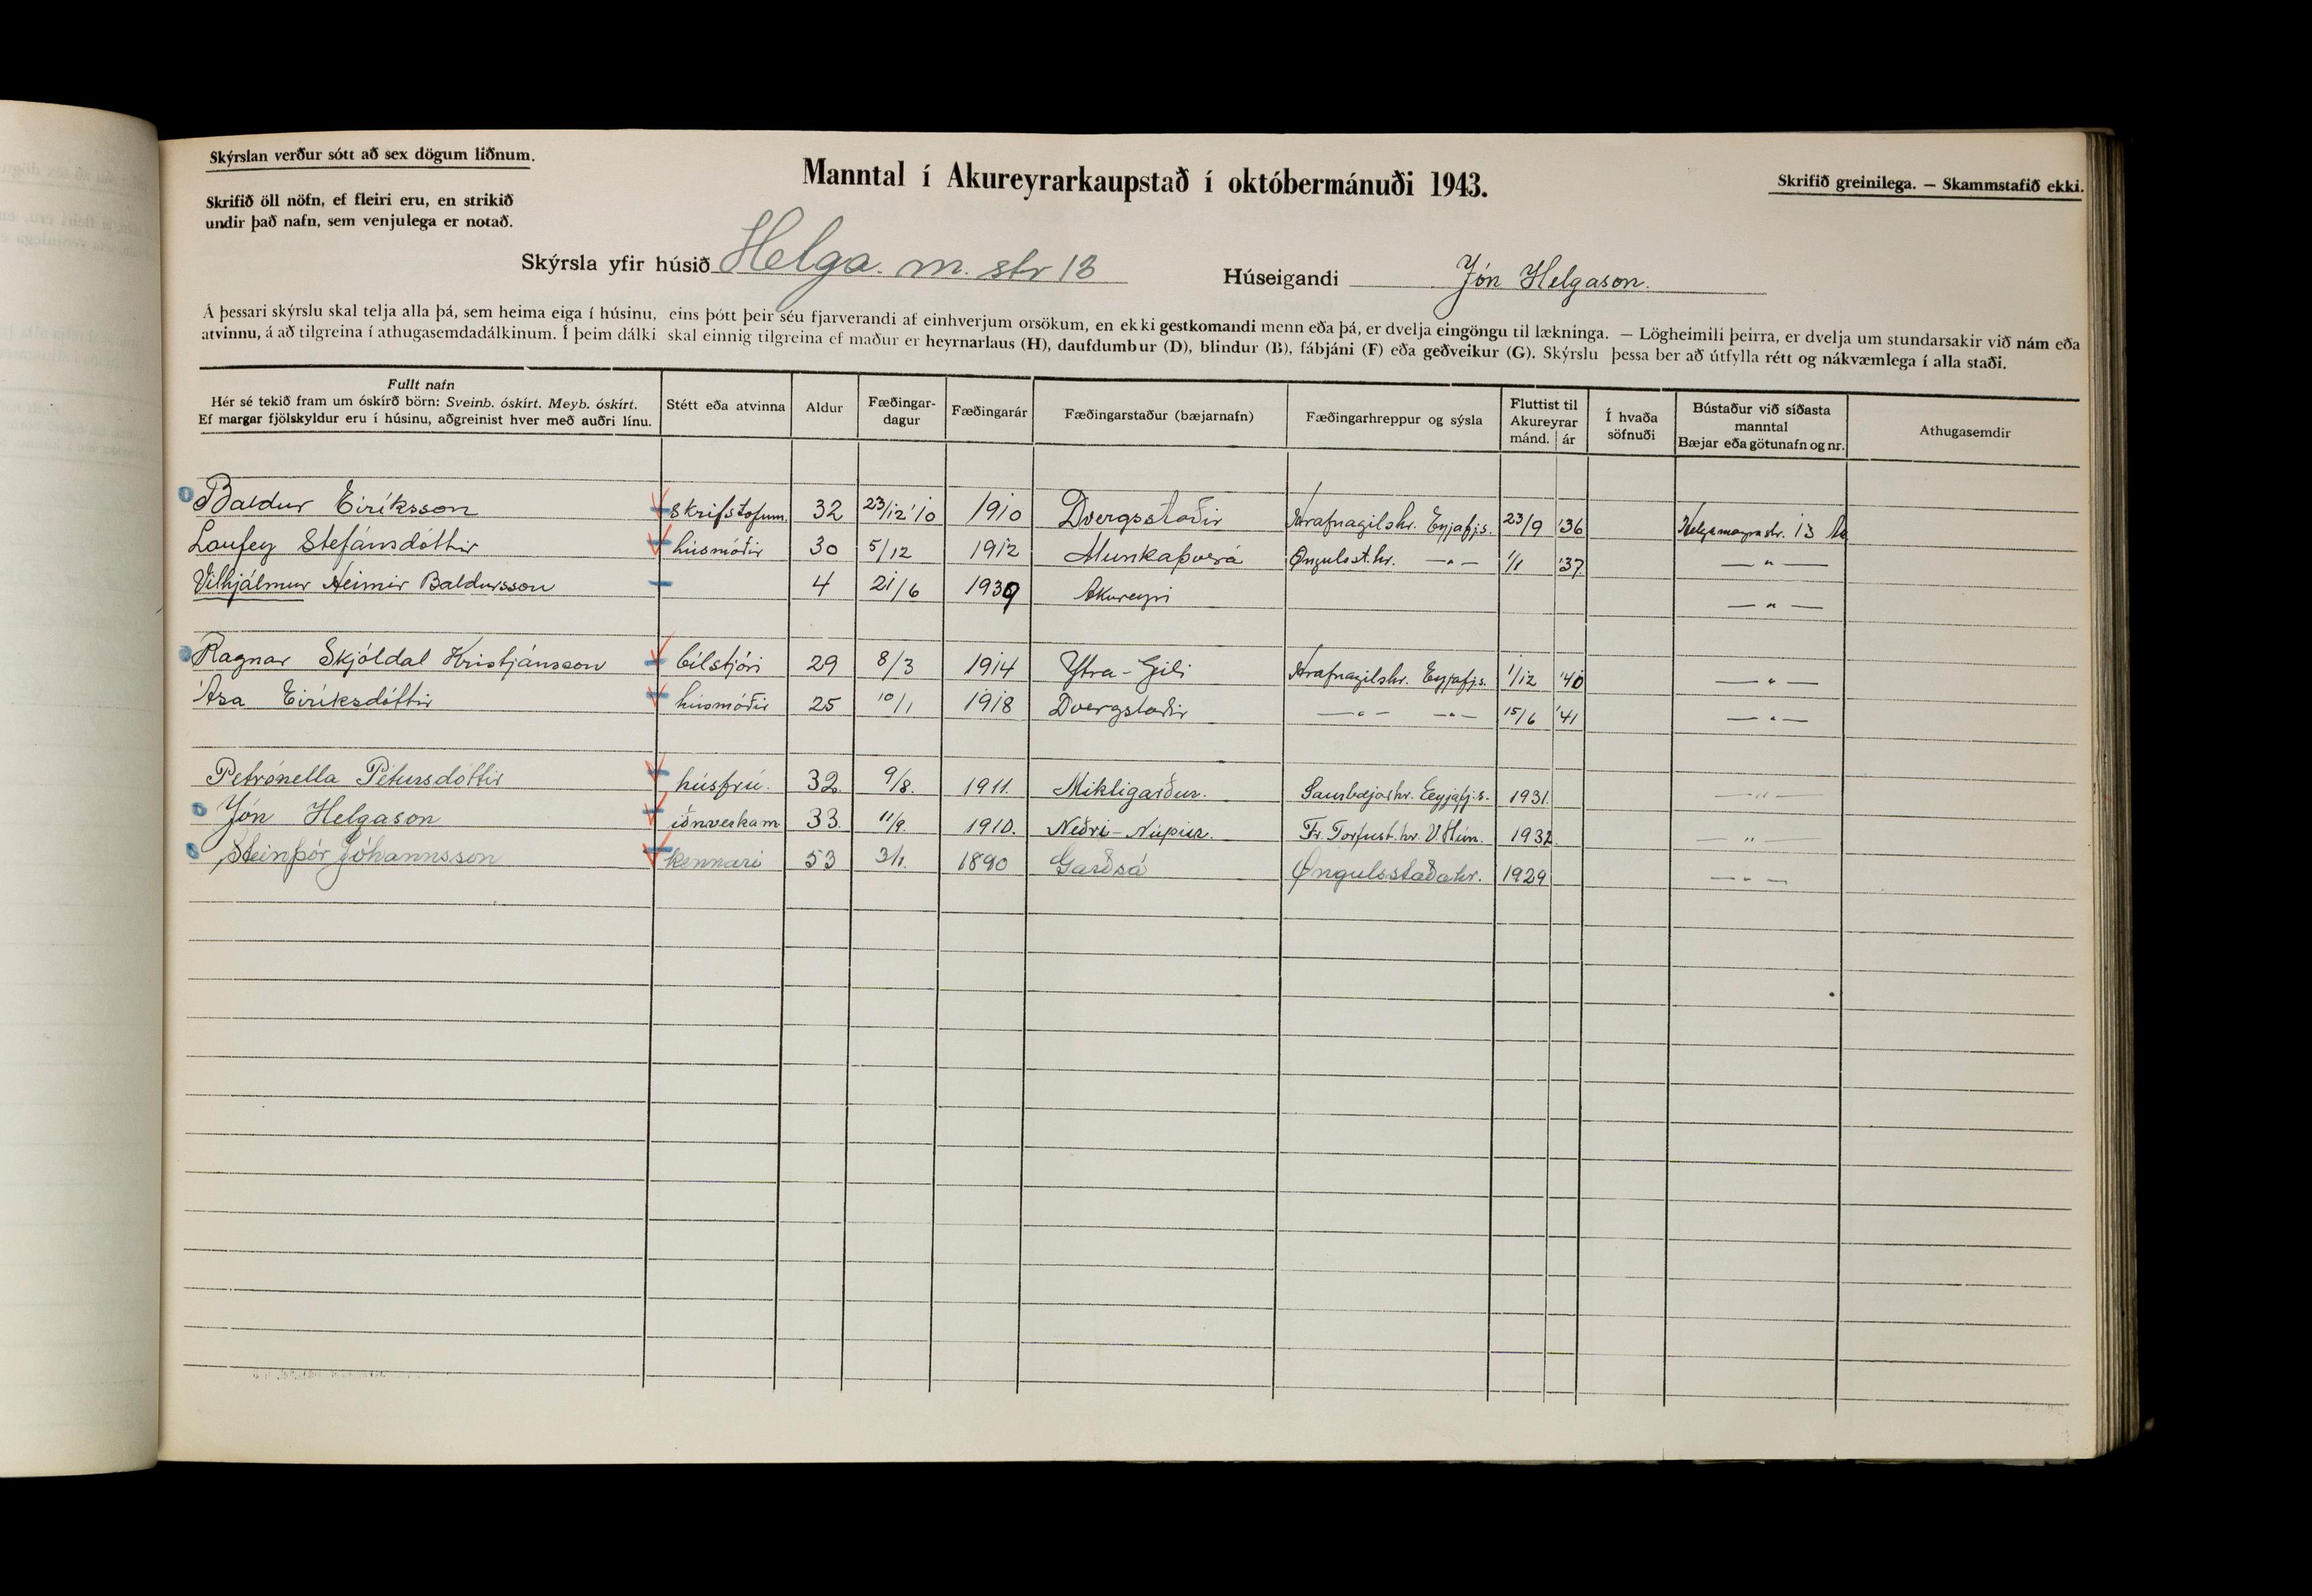 Skýrslan verður sótt að sex dögum liðnum.
Skrifið öll nöfn, ef fleiri eru, en strikið
undir það nafn, sem venjulega er notað.
Manntal í Akureyrarkaupstað í októbermánuði 1943.
Skrifið greinilega. — Skammstafið ekki.
Skýrsla yfir húsið Helga. m. str 13 Húseigandi Jón Helgason.
Á þessari skýrslu skal telja alla þá, sem heima eiga í húsinu, eins þótt þeir séu fjarverandi af einhverjum orsökum, en ekki gestkomandi menn eða þá, er dvelja eingöngu til lækninga. — Lögheimili þeirra, er dvelja um stundarsakir við nám eða
atvinnu, á að tilgreina í athugasemdadálkinum. Í þeim dálki skal einnig tilgreina ef maður er heyrnarlaus (H), daufdumbur (D), blindur (B), fábjáni (F) eða geðveikur (G). Skýrslu þessa ber að útfylla rétt og nákvæmlega í alla staði.
Fullt nafn
Hér sé tekið fram um óskírð börn: Sveinb. óskírt. Meyb. óskírt.
Ef margar fjölskyldur eru í húsinu, aðgreinist hver með auðri línu.
Stétt eða atvinna
Aldur
Fæðingar-
dagur
Fæðingarár
Fæðingarstaður (bæjarnafn)
Fæðingarhreppur og sýsla
Fluttist til
Akureyrar
mánd. | ár
Í hvaða
söfnuði
Bústaður við síðasta
manntal
Bæjar eða götunafn og nr.
Athugasemdir
Baldur Eiríksson skrifstofum. 32 23/12 '10 1910 Dvergsstaðir Hrafnagilshr. Eyjafj.s. 23/9 '36 Helgamagrastr. 13 Ak
Laufey Stefánsdóttir húsmóðir 30 5/12 1912 Munkaþverá Öngulsst.hr. —„— 1/1 '37 —„—
Vilhjálmur Heimir Baldursson 4 21/6 1939 Akureyri —„—
Ragnar Skjóldal Kristjánsson bílstjóri 29 8/3 1914 Ytra-Gili Hrafnagilshr. Eyjafj.s. 1/12 '40 —„—
Ása Eiríksdóttir húsmóðir 25 10/1 1918 Dvergstaðir —„— —„— 15/6 '41 —„—
Petrónella Pétursdóttir húsfrú. 32. 9/8. 1911. Mikligarður. Saurbæjarhr. Eyjafj.s. 1931. —„—
Jón Helgason iðnverkam. 33. 11/9. 1910. Neðri-Núpur. Fr. Torfust.hr. V. Hún. 1932. —„—
Steinþór Jóhannsson kennari 53 3/1. 1890 Garðsá Öngulsstaðahr. 1929 —„—